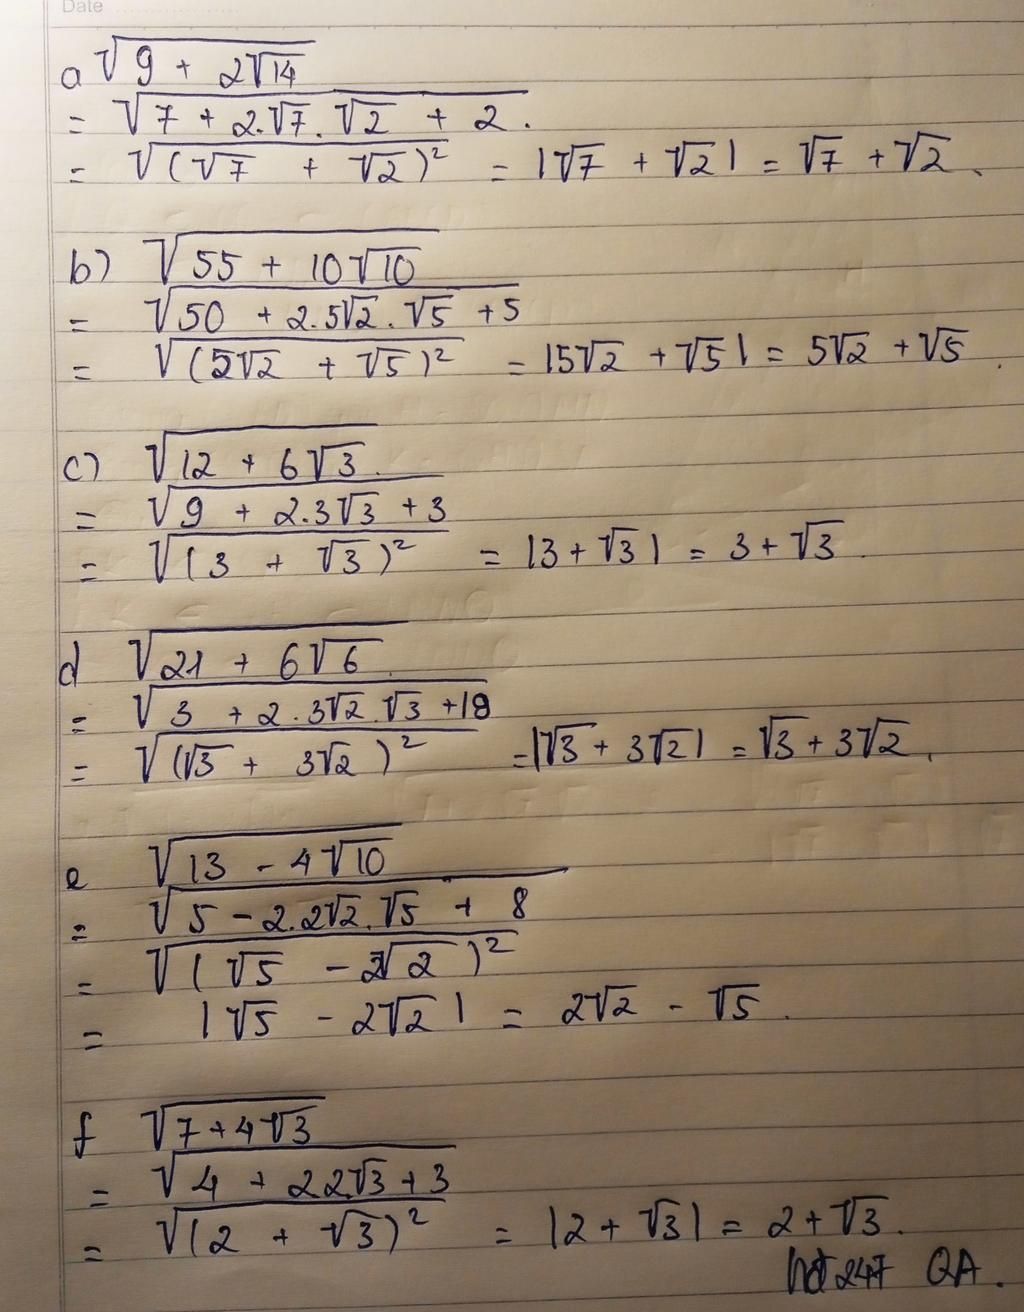 Date
a √(9 + 2√14)
= √(7 + 2.√7.√2 + 2.
= √((√7 + √2)² = |√7 + √2| = √7 + √2.
b) √(55 + 10√10)
= √(50 + 2.5√2.√5 + 5)
= √((5√2 + √5)²) = |5√2 + √5| = 5√2 + √5.
c) √(12 + 6√3).
= √(9 + 2.3√3 + 3)
= √((3 + √3)²) = |3 + √3| = 3 + √3.
d √(21 + 6√6)
= √(3 + 2.3√2.√3 + 18)
= √((√3 + 3√2)²) = |√3 + 3√2| = √3 + 3√2.
e √(13 - 4√10)
= √(5 - 2.2√2.√5 + 8)
= √((√5 - 2√2)²)
= |√5 - 2√2| = 2√2 - √5.
f √(7 + 4√3)
= √(4 + 2.2√3 + 3)
= √((2 + √3)²) = |2 + √3| = 2 + √3.
hd247 QA.